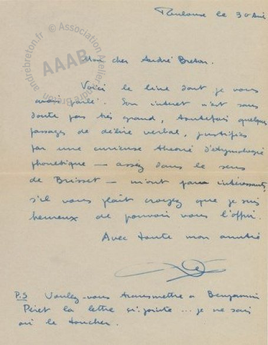 Toulouse le 30 Déc
Mon cher André Breton.
Voici le livre dont je vous
avais parlé. Son intérêt n'est sans
doute pas très grand, toutefois quelques
passages de délire verbal, justifiés
par une curieuse théorie d'étymologie
phonétique — assez dans le sens
de Brisset — m'ont paru intéressants
s'il vous plaît croyez que je suis
heureux de pouvoir vous l'offrir.
Avec toute mon amitié
P.S Voulez-vous transmettre à Benjamin
Péret la lettre ci-jointe... je ne sais
où le toucher.
AAAB
andrebreton.fr
Association Atelier André Breton